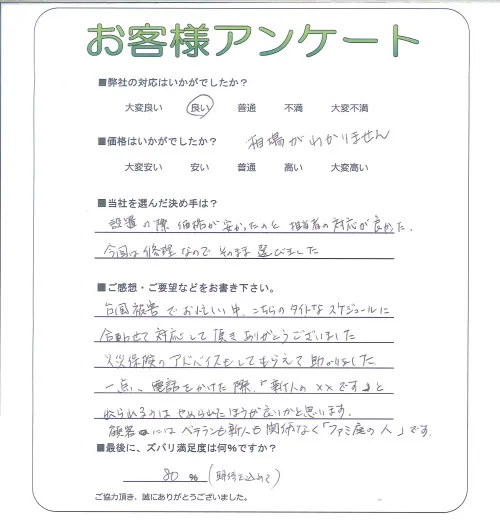 お客様アンケート
■弊社の対応はいかがでしたか？
大変良い 良い 普通 不満 大変不満
■価格はいかがでしたか？ 相場がわかりません
大変安い 安い 普通 高い 大変高い
■当社を選んだ決め手は？
設置の際 価格が安かったのと 担当者の対応が良かった.
今回は修理なので そのまま 選びました
■ご感想・ご要望などをお書き下さい。
台風被害でお忙しい中、こちらのタイトなスケジュールに
合わせて対応して頂きありがとうございました
火災保険のアドバイスもしてもらえて助かりました.
一点、電話をかけた際、「新人の××です」と
名のられるのは やめられたほうが良いかと思います.
顧客にはベテランも新人も関係なく「ファミ庭の人」です.
■最後に、ズバリ満足度は何%ですか？
80 % (期待を込めて)
ご協力頂き、誠にありがとうございました。